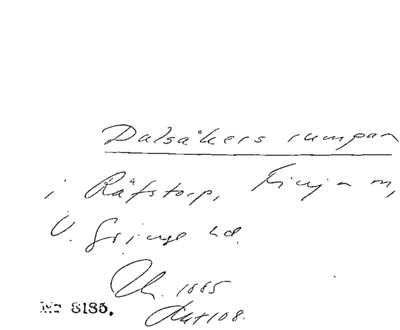 Dalsåkers rumpan
i Räfstorp, Finja sn,
V. Göinge hd.
Lm. 1885
Akt 108.
Nr 8185.